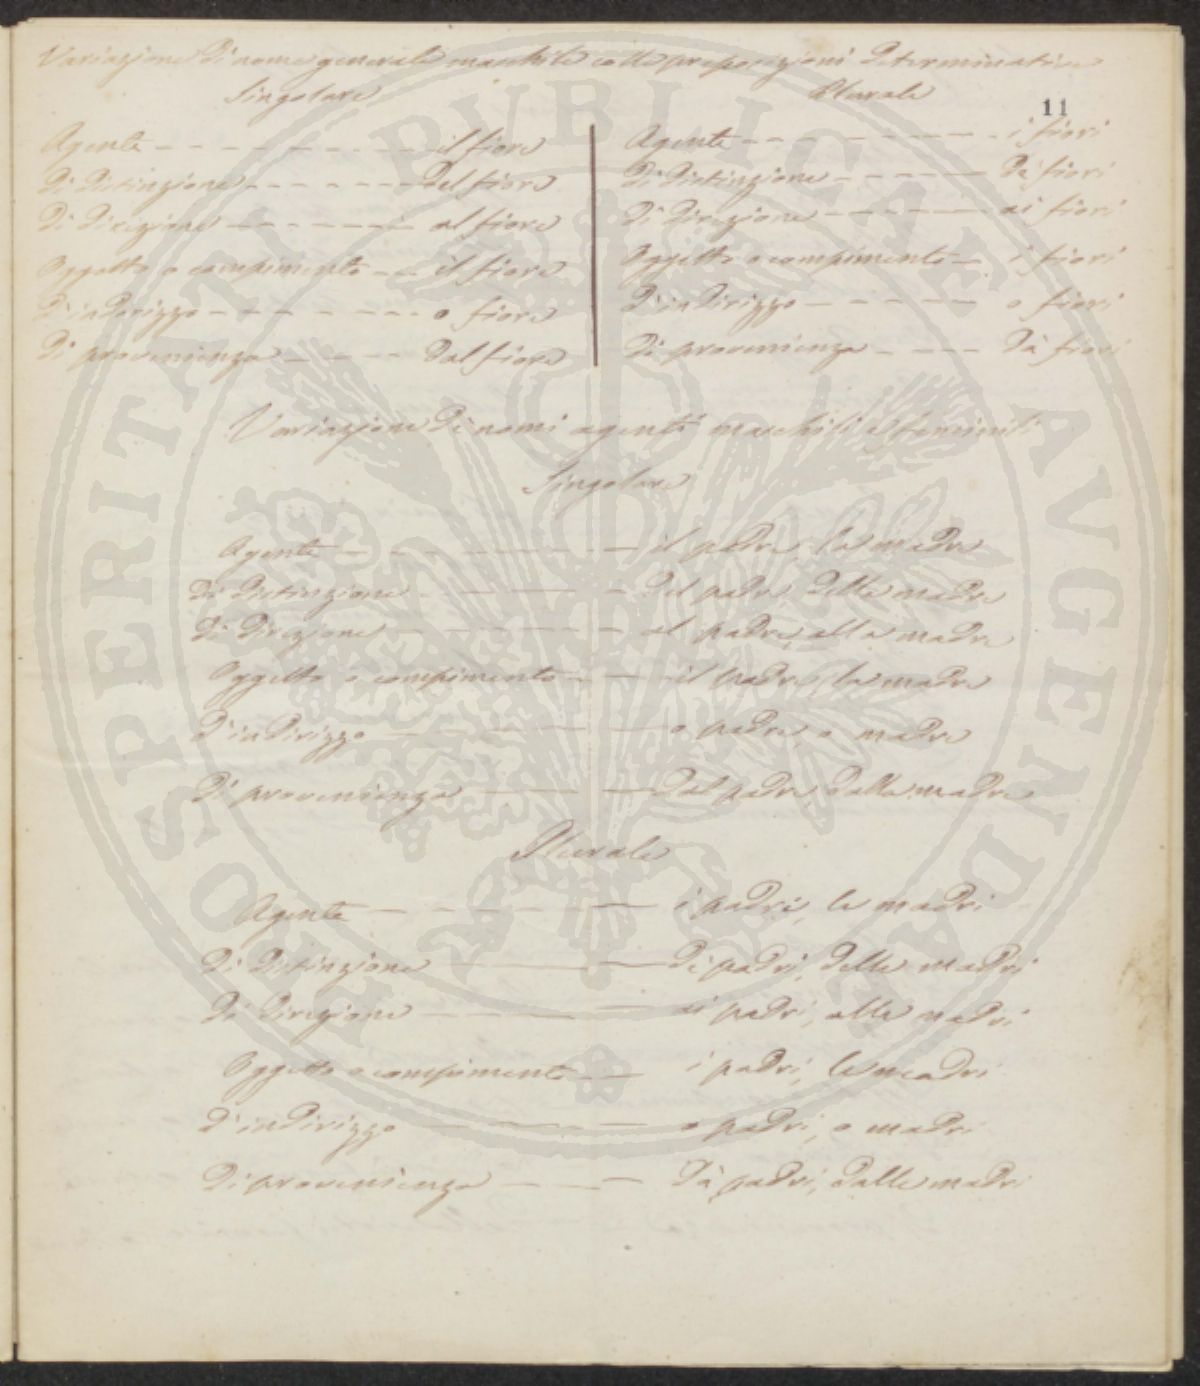 Variazione di nome generale maschile colle preposizioni determinative
Singolare
Plurale
11
Agente - - - - - - - - il fiore
Di distinzione - - - - - - del fiore
Di direzione - - - - - - - al fiore
Oggetto o compimento - - il fiore
D'indirizzo - - - - - - - - o fiore
Di provenienza - - - - - dal fiore
Agente - - - - - - - - - i fiori
Di distinzione - - - - - de' fiori
Di direzione - - - - - - ai fiori
Oggetto o compimento - i fiori
D'indirizzo - - - - - - - o fiori
Di provenienza - - - - da' fiori
Variazione di nomi agenti maschili e femminili
Singolare
Agente - - - - - - - - il padre, la madre
Di distinzione - - - - - del padre, della madre
Di direzione - - - - - - al padre, alla madre
Oggetto o compimento - - il padre, la madre
D'indirizzo - - - - - - o padre, o madre
Di provenienza - - - - dal padre, dalla madre
Plurale
Agente - - - - - - - i padri, le madri
Di distinzione - - - - de' padri, delle madri
Di direzione - - - - - ai padri, alle madri
Oggetto o compimento - - i padri, le madri
D'indirizzo - - - - - o padri, o madri
Di provenienza - - - da' padri, dalle madri
PROSPERITATI PUBLICAE AVGENDAE